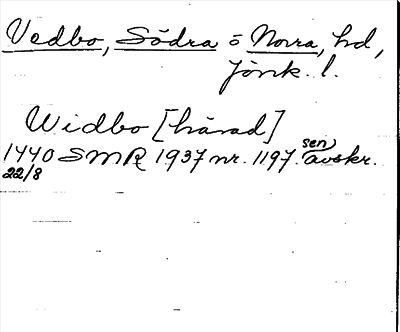 Vedbo, Södra o Norra, hd,
Jönk. l.
Widbo [härad]
1440 SMR 1937 nr. 1197. sen avskr.
22/8